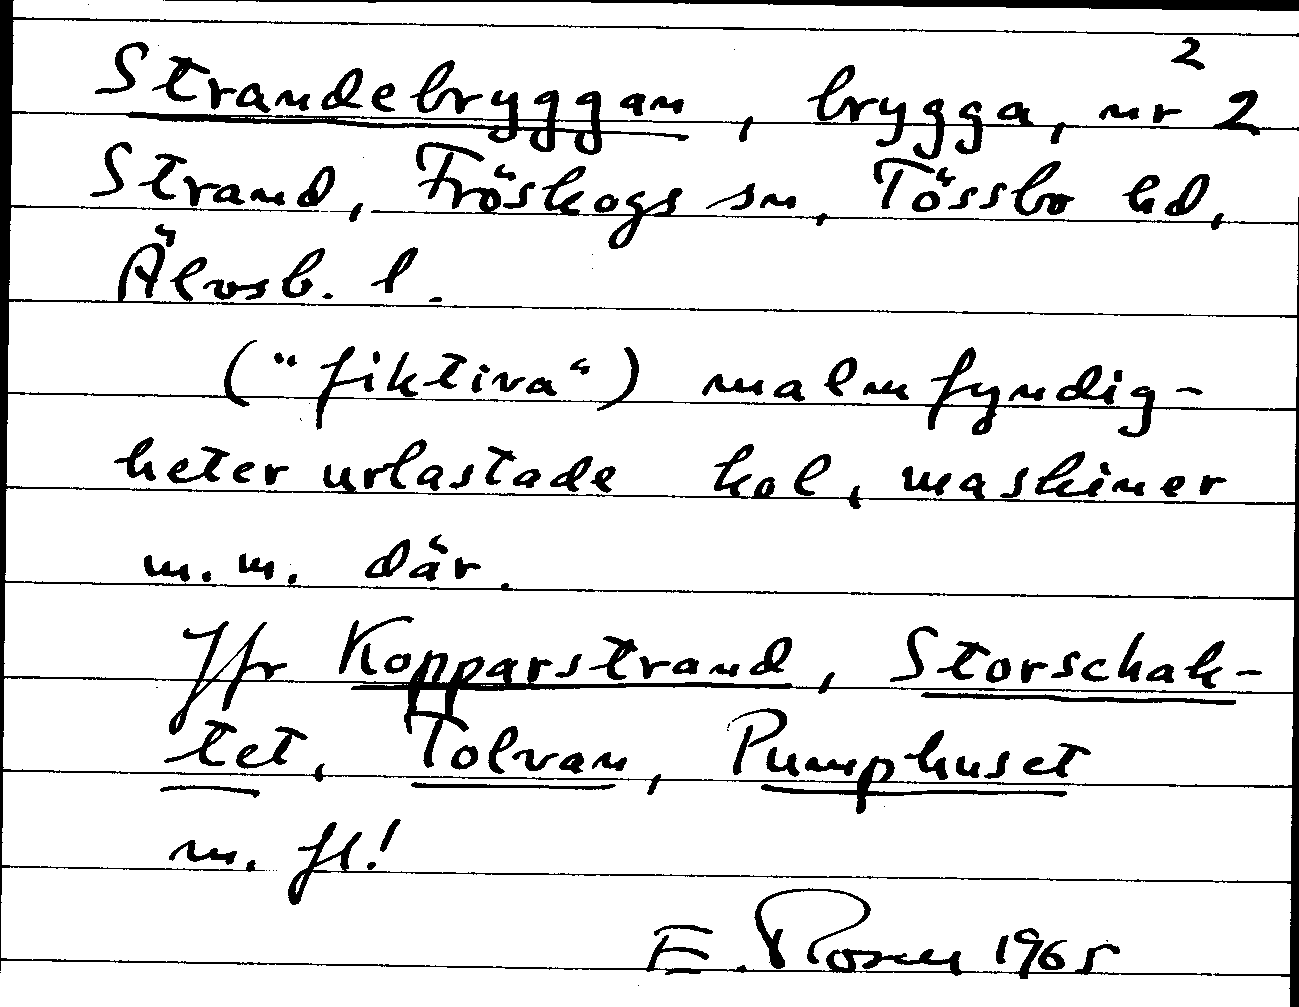 2
Strandebryggan, brygga, nr 2
Strand, Fröskogs sn, Tössbo hd,
Älvsb. l.
("fiktiva") malmfyndig-
heter urlastade kol, maskiner
m.m. där.
Jfr Kopparstrand, Storschak-
tet, Tolvan, Pumphuset
m. fl!
E. Rosen 1965